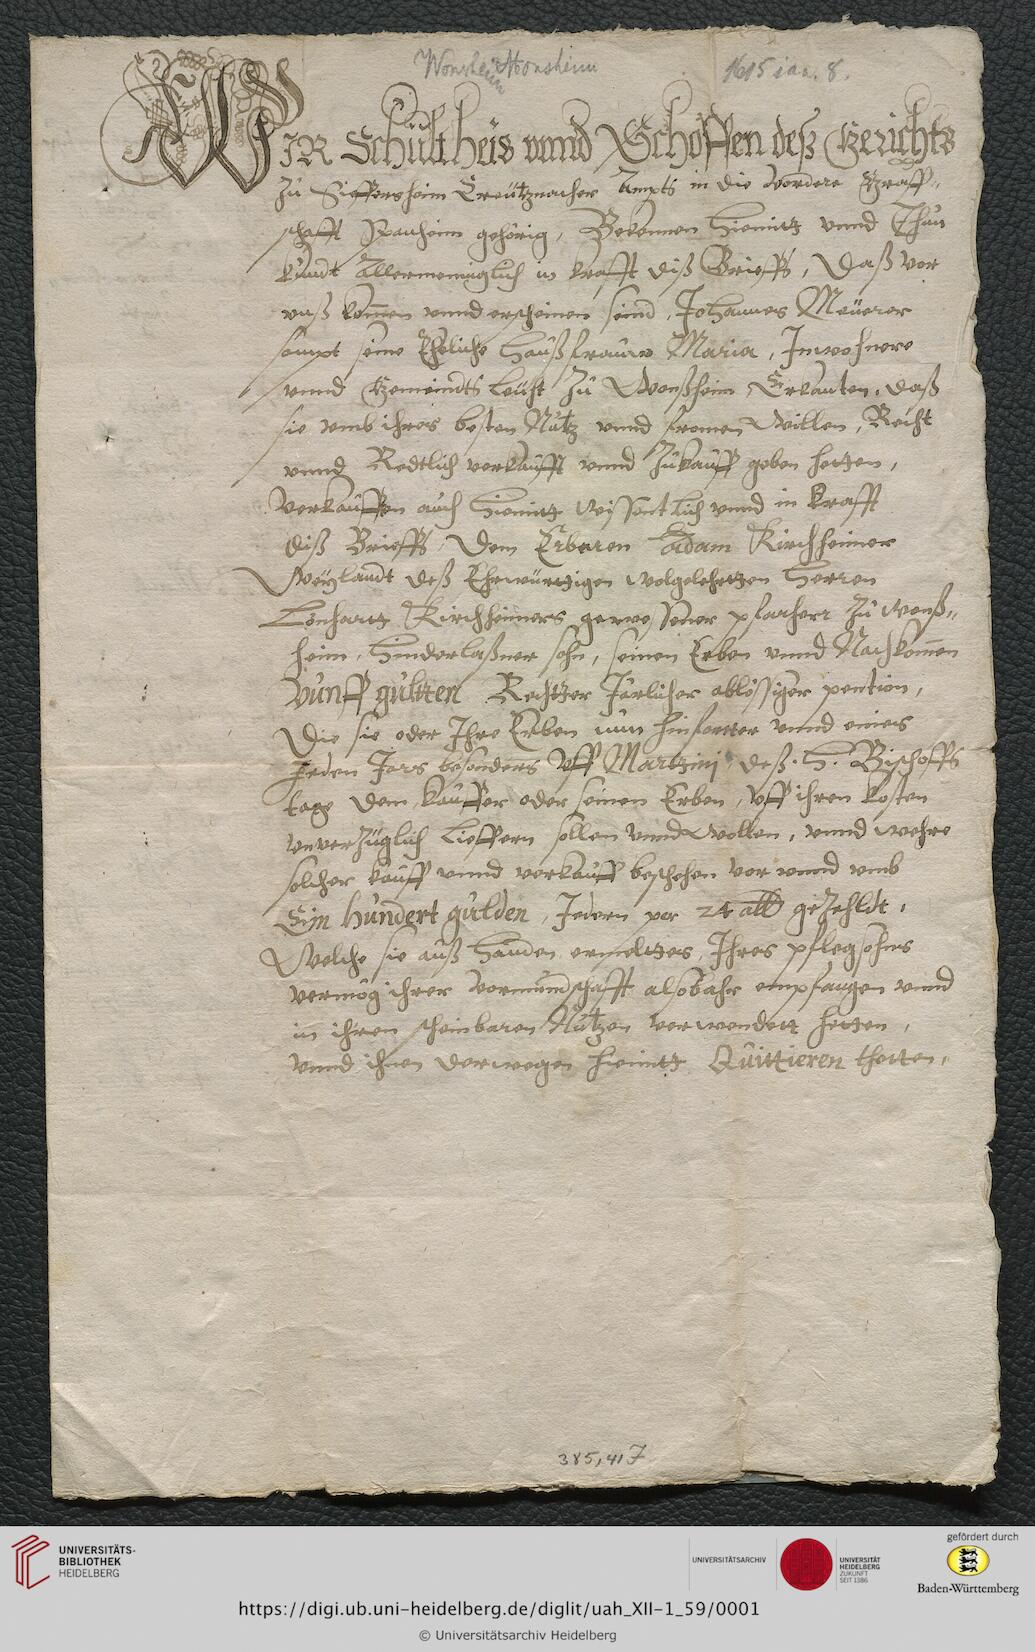 Wonsheim Monsheim 1615 ian. 8.
WIR Schultheis vnnd Schöffen deß Gerichts
Zu Sieffersheim Creutznacher Ampts in die vordere Graff„
schafft Spanheim gehörig, Bekennen hiemitt vnnd Thun
kundt Allermenniglich in krafft diß Brieffs, Daß vor
vnß kommen vnnd erschienen seind, Johannes Meürer
sampt seine Eheliche Haußfrauw Maria, Inwohnere
vnnd Gemeindts Leüth Zu Wonßheim, Erkanten, daß
sie vmb ihres besten Nutz vnnd fromen Willen, Recht
vnnd Redtlich verkaufft vnnd Zukauff geben hetten,
Verkauffen auch hiemitt wissentlich vnnd in krafft
diß Brieffs, Dem Erbaren Adam Kirchheimer
Weylandt deß Ehrwürdigen wolgelehrtten Herren
Lenhartt Kirchheimers gewesener pfarherr Zu Wonß„
heim, Hinderlaßner sohn, seinen Erben vnnd Nachkommen
Vünff gültten Rechtter Järlicher ablößiger pention,
Die sie oder Ihre Erben nun hinfortter vnnd eines
Jeden Jars besonders Vff Martini deß H. Bischoffs
tage dem kauffer oder seinen Erben, Vff ihren kosten
vnverzüglich Lieffern sollen vnnd wollen, vnnd wehre
solcher kauff vnnd verkauff beschehen vor vnnd vmb
Ein hundert gulden, Jedern per 24 alb gezehldt,
Welche sie auß Handen ermeltes, Ihres pflegsohns
vermög ihrer vormundschafft alsobahr empfangen vnnd
in ihren scheinbaren Nutzen verwendett hetten,
vnnd ihnen derwegen hiemitt Quittieren thetten,
385,417
UNIVERSITÄTS-
BIBLIOTHEK
HEIDELBERG
UNIVERSITÄTSARCHIV
UNIVERSITÄT
HEIDELBERG
ZUKUNFT
SEIT 1386
gefördert durch
Baden-Württemberg
https://digi.ub.uni-heidelberg.de/diglit/uah_XII-1_59/0001
© Universitätsarchiv Heidelberg